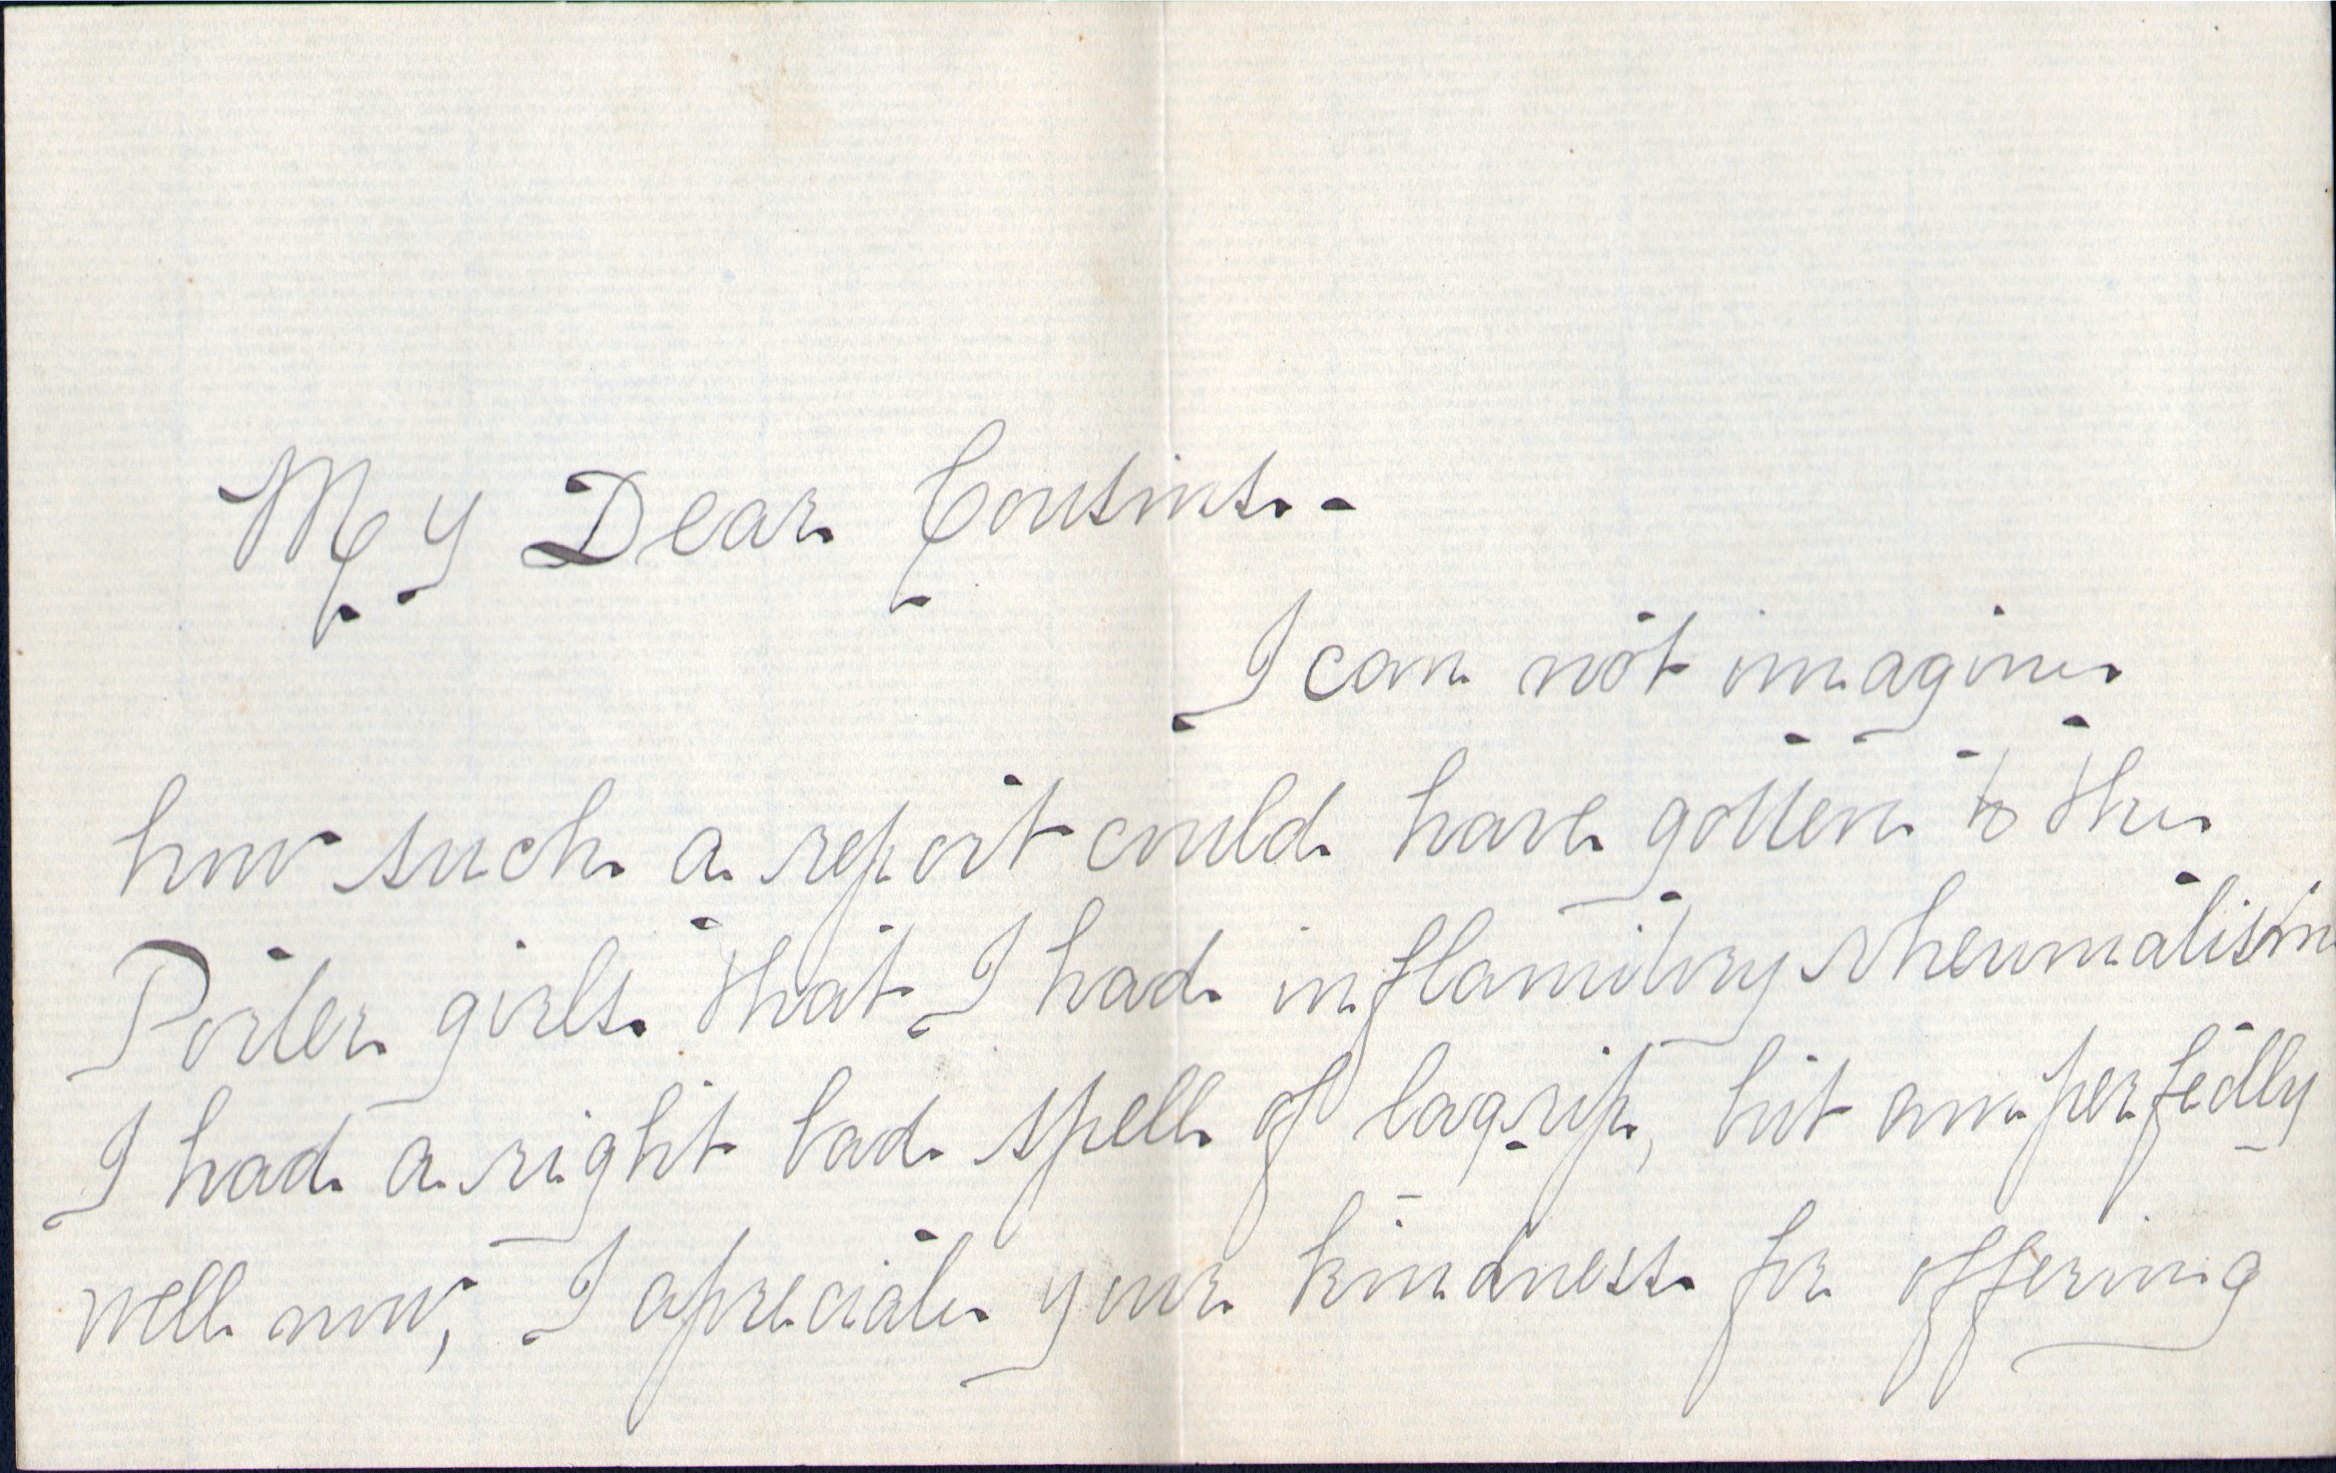 My Dear Cousins.-
I can not imagine
how such a report could have gotten to the
Porter girls that I had inflamitory rheumatism
I had a right bad spell of lagrip, but am perfectly
well now, I apreciate your kindness for offering